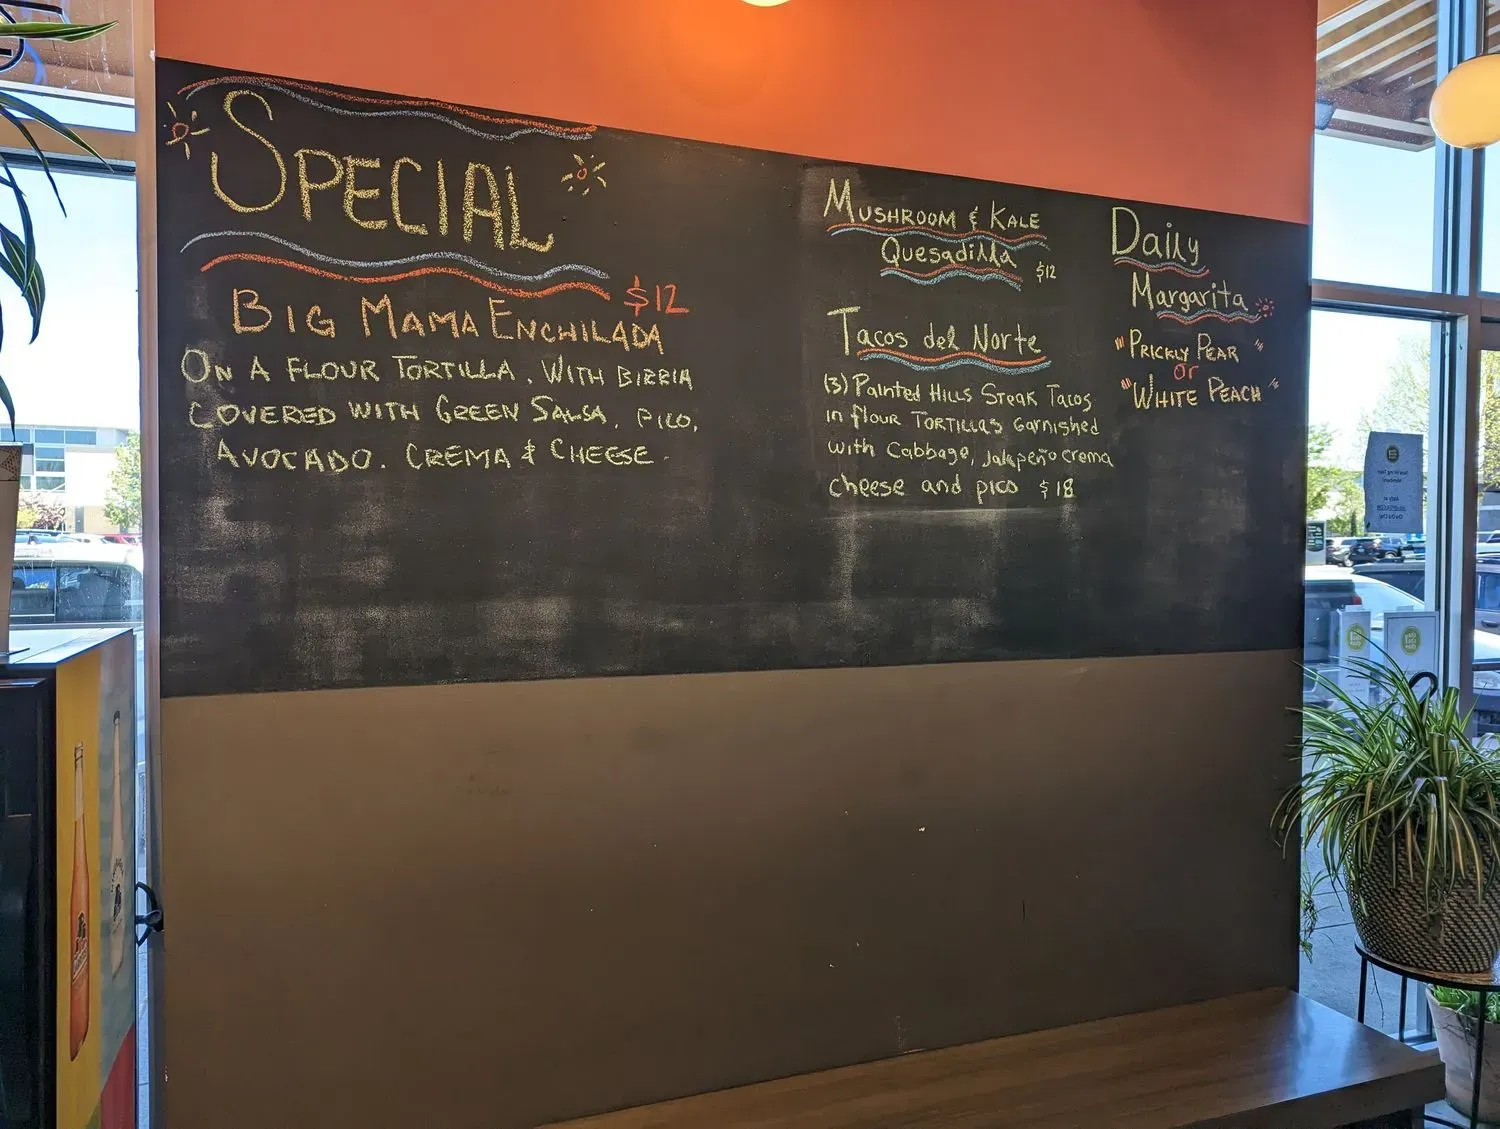 SPECIAL
BIG MAMA ENCHILADA $12
ON A FLOUR TORTILLA. WITH BIRRIA
COVERED WITH GREEN SALSA, PICO,
AVOCADO. CREMA & CHEESE.
MUSHROOM & KALE
Quesadilla $12
Tacos del Norte
(3) Painted HILLS STEAK TACOS
in flour TORTILLAS Garnished
with Cabbage, jalapeño crema
cheese and pico $18
Daily
Margarita
"PRICKLY PEAR"
or
"WHITE PEACH"